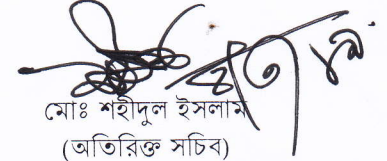 মোঃ শহীদুল ইসলাম
(অতিরিক্ত সচিব)